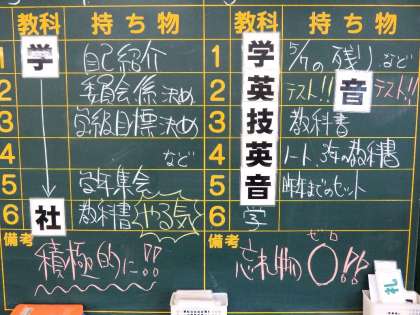 教科 持ち物
1 学 自己紹介
2 委員会係決め
3 学級目標決め
4 など
5 学年集会
6 社 教科書 やる気
備考
積極的に!!
教科 持ち物
1 学 5/7の残りなど
2 英 テスト!! 音 テスト!!
3 技 教科書
4 英 ノート、3年の教科書
5 音 昨年までのセット
6 学
備考
忘れ物 ゼロ 〇!!
礼